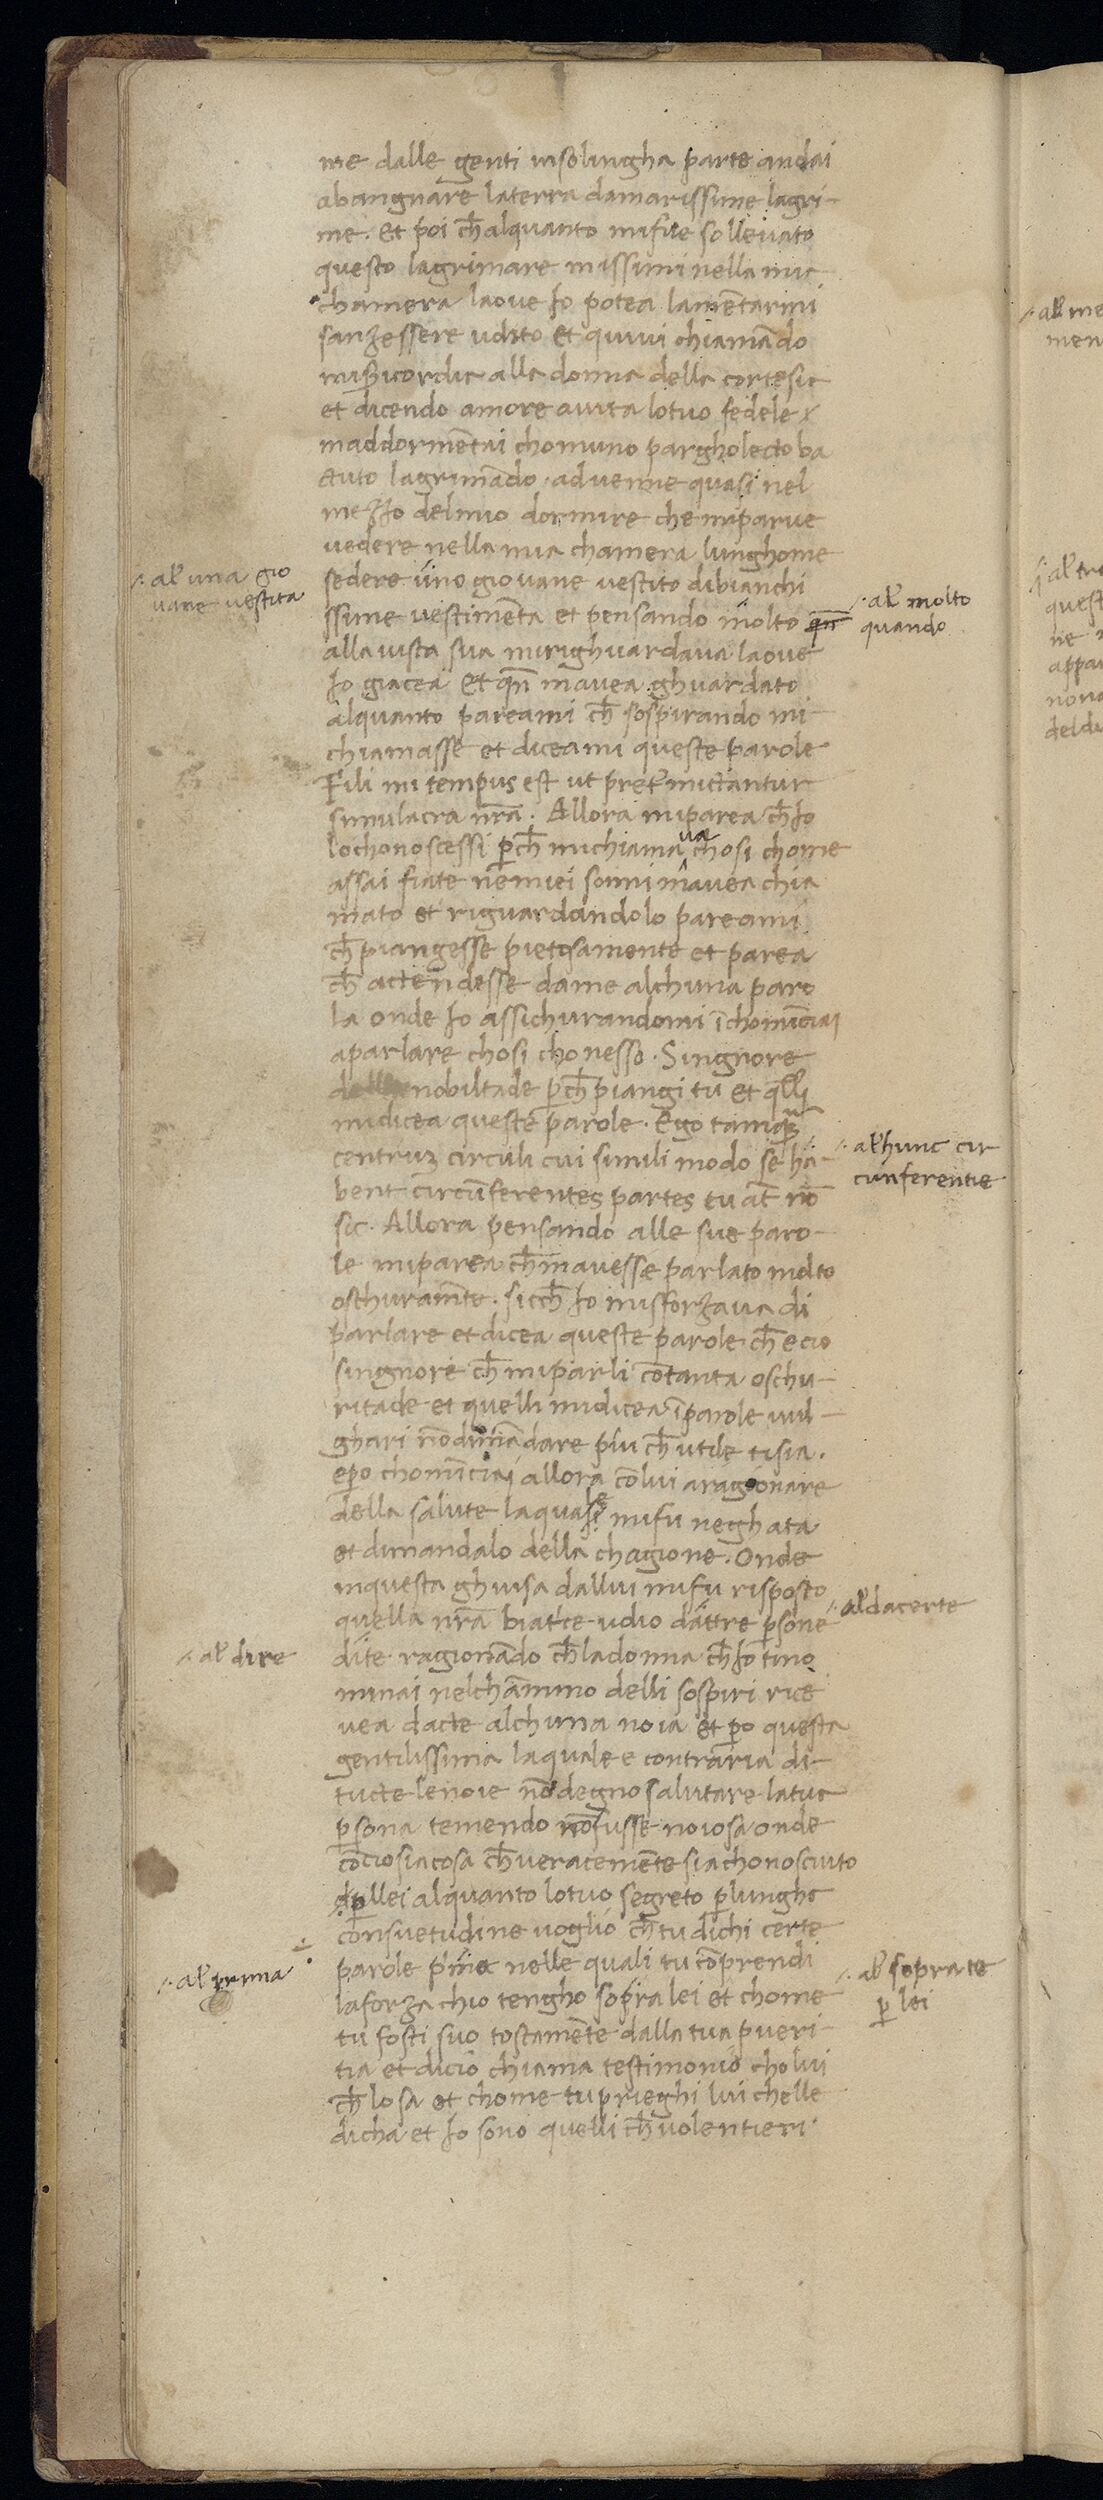 me dalle genti insolingha parte andai
abangnare laterra damarissime lagri-
me. et poi ch̄alquanto mifue sollevato
questo lagrimare missimi nella mia
chamera laove Io potea lamētarmi
sanzessere udito et quivi chiamādo
misericordia alla donna della cortesia
et dicendo amore aiuta lotuo fedele
maddormētai chomuno pargholecto ba
ctuto lagrimādo. advenne quasi nel
mezzo delmio dormire che miparve
vedere nella mia chamera lunghome
sedere uno giovane vestito dibianchi
ssime vestimēta et pensando molto qn̄
alla vista sua mirighuardava laove
Io giacea et qn̄ mavea ghuardato
alquanto pareami ch̄ sospirando mi-
chiamasse et diceami queste parole
Fili mi tempus est ut pret̄mictantur
simulacra nr̄a. Allora miparea ch̄Io
lochonoscessi p̄ch̄ michiamava chosi chome
assai fiate nemiei sonni mavea chia
mato et riguardandolo pareami
ch̄ piangesse pietosamente et parea
ch̄ actendesse dame alchuna paro
la onde Io assichurandomi īchomīciai
aparlare chosi chonesso. Singnore
della nobiltade p̄ch̄ piangi tu et q̄lli
midicea queste parole. Ego tamq̄
centruz circuli cui simili modo se ha-
bent circūferentes partes tu at̄ nō
sic. Allora pensando alle sue paro-
le miparea ch̄mavesse parlato molto
oschuramt̄e. sicch̄ Io misforzava di
parlare et dicea queste parole ch̄ e cio
singnore ch̄ miparli cōtanta oschu-
ritade et quelli midicea īparole vul-
ghari nōdimādare piu ch̄ utile tisia.
ep̄o chomīciai allora cōlui aragionare
della salute laquale mifu neghata
et dimandalo della chagione. Onde
inquesta ghuisa dallui mifu risposto
quella nr̄a biatrice udio dattre p̄sone
dite ragionādo ch̄ladonna ch̄Io tino
minai nelchāmino delli sospiri rice
vea dacte alchuna noia et p̄o questa
gentilissima laquale e contraria di-
tucte lenoie nō degno salutare latua
p̄sona temendo nō fusse noiosa onde
cōciosiacosa ch̄veracemēte siachonosciuto
p̄llei alquanto lotuo segreto p̄lungha
consuetudine voglio ch̄ tu dichi certe
parole p̄ me nelle quali tu cōprendi
laforza chio tengho sopra lei et chome
tu fosti suo tostamēte dalla tua pueri-
tia et dicio chiama testimonio cholui
ch̄ lo sa et chome tu prieghi lui chelle
dicha et Io sono quelli ch̄volentieri.
∴ al' una gio
vane vestita
∴ al' molto
quando
∴ al'hunc cir
cunferentie
∴ al'dacerte
∴ al' dire
∴ al' prima
∴ al' sopra te
p̄ lei
∴ al' me
men
al' tra
quest
ne
appar
nova
deldi